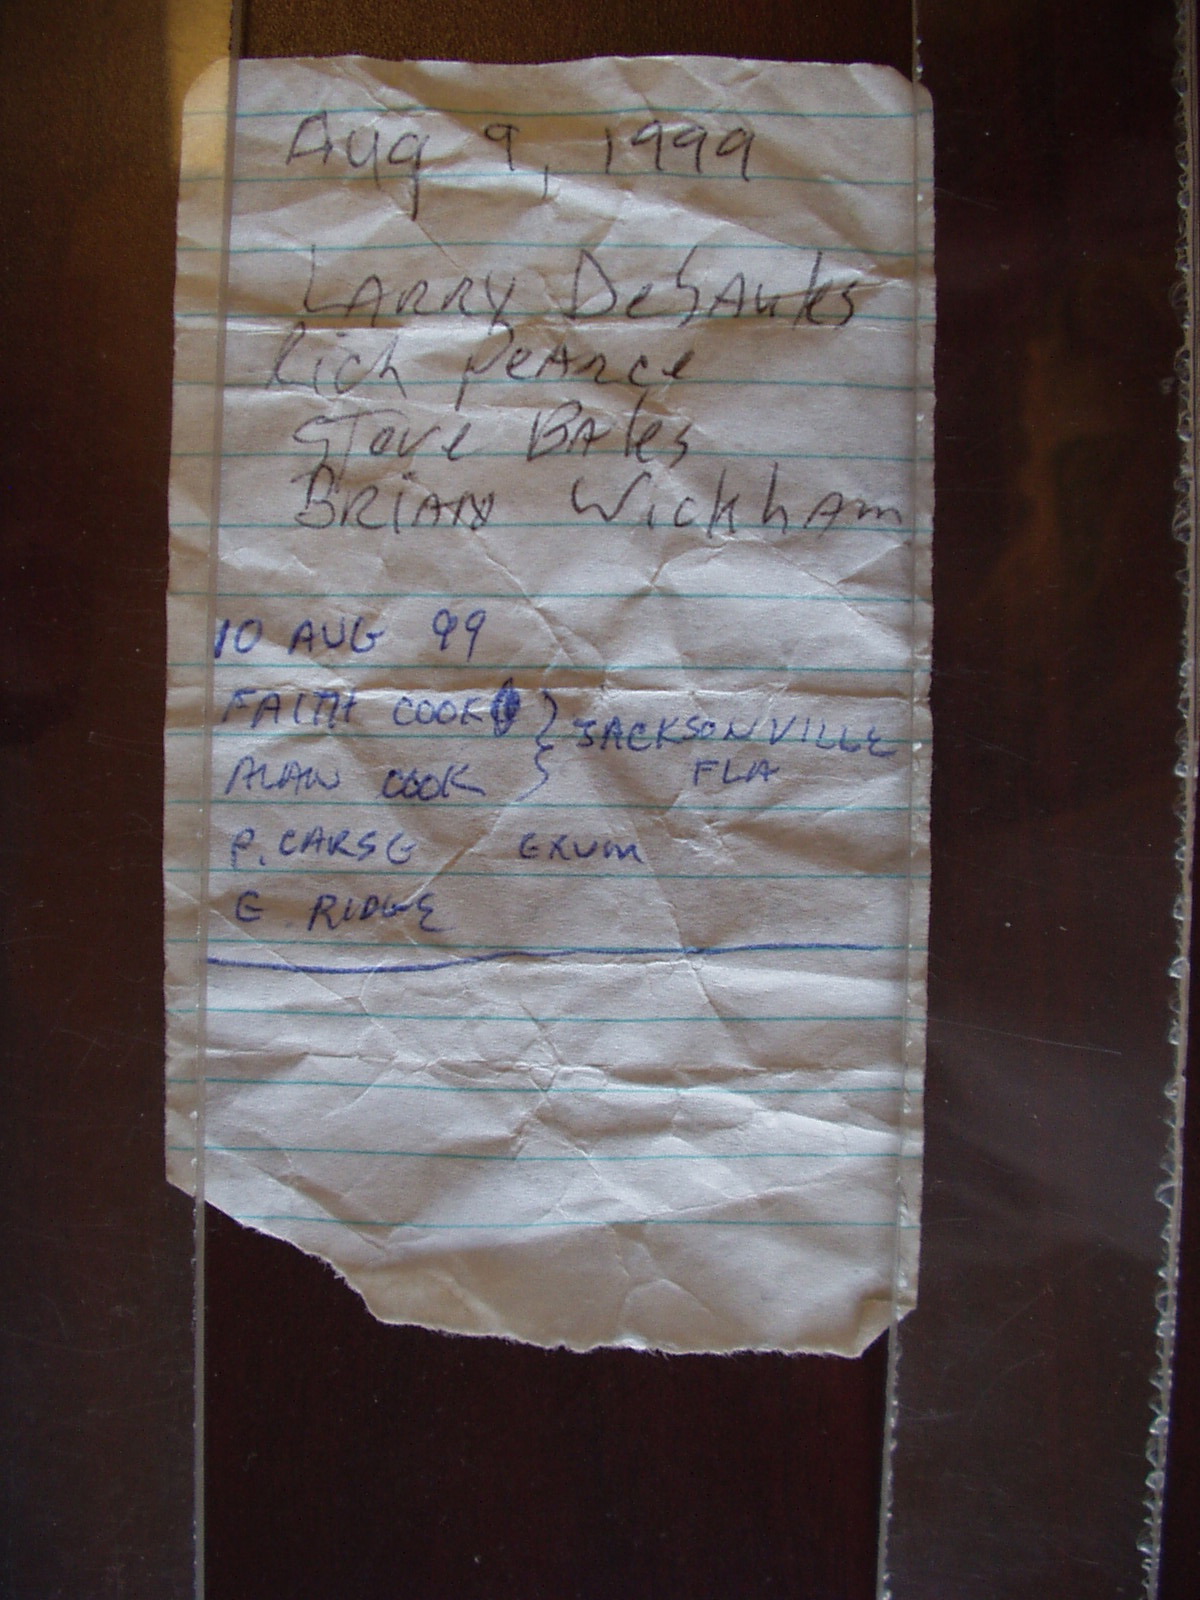 Aug 9, 1999
LARRY DeSAules
Rich PeArce
Steve BAles
BRiAN WickhAm
10 AUG 99
FAITH COOK } JACKSONVILLE
ALAN COOK } FLA
P. CARSE EXUM
E RIDGE